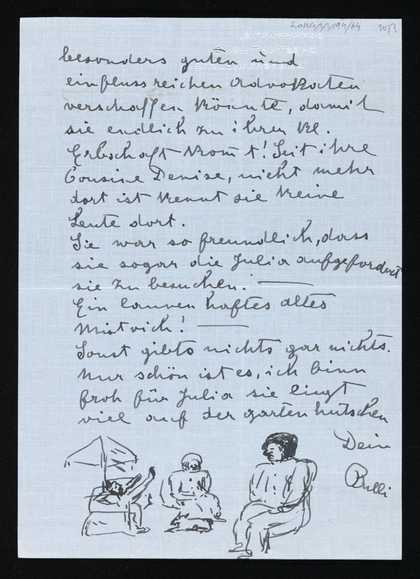 besonders guten und
einflussreichen Advokaten
verschaffen könnte, damit
sie endlich zu ihrer kl.
Erbschaft kom̄t! Seit ihre
Cousine Denise, nicht mehr
dort ist kennt sie keine
Leute dort.
Sie war so freundlich, dass
sie sogar die Julia aufgefordert
sie zu besuchen. —
Ein launenhaftes altes
Mistvich! —
Sonst gibts nichts gar nichts.
Nur schön ist es, ich binn
froh für Julia sie liegt
viel auf der gartenhutschen
Dein